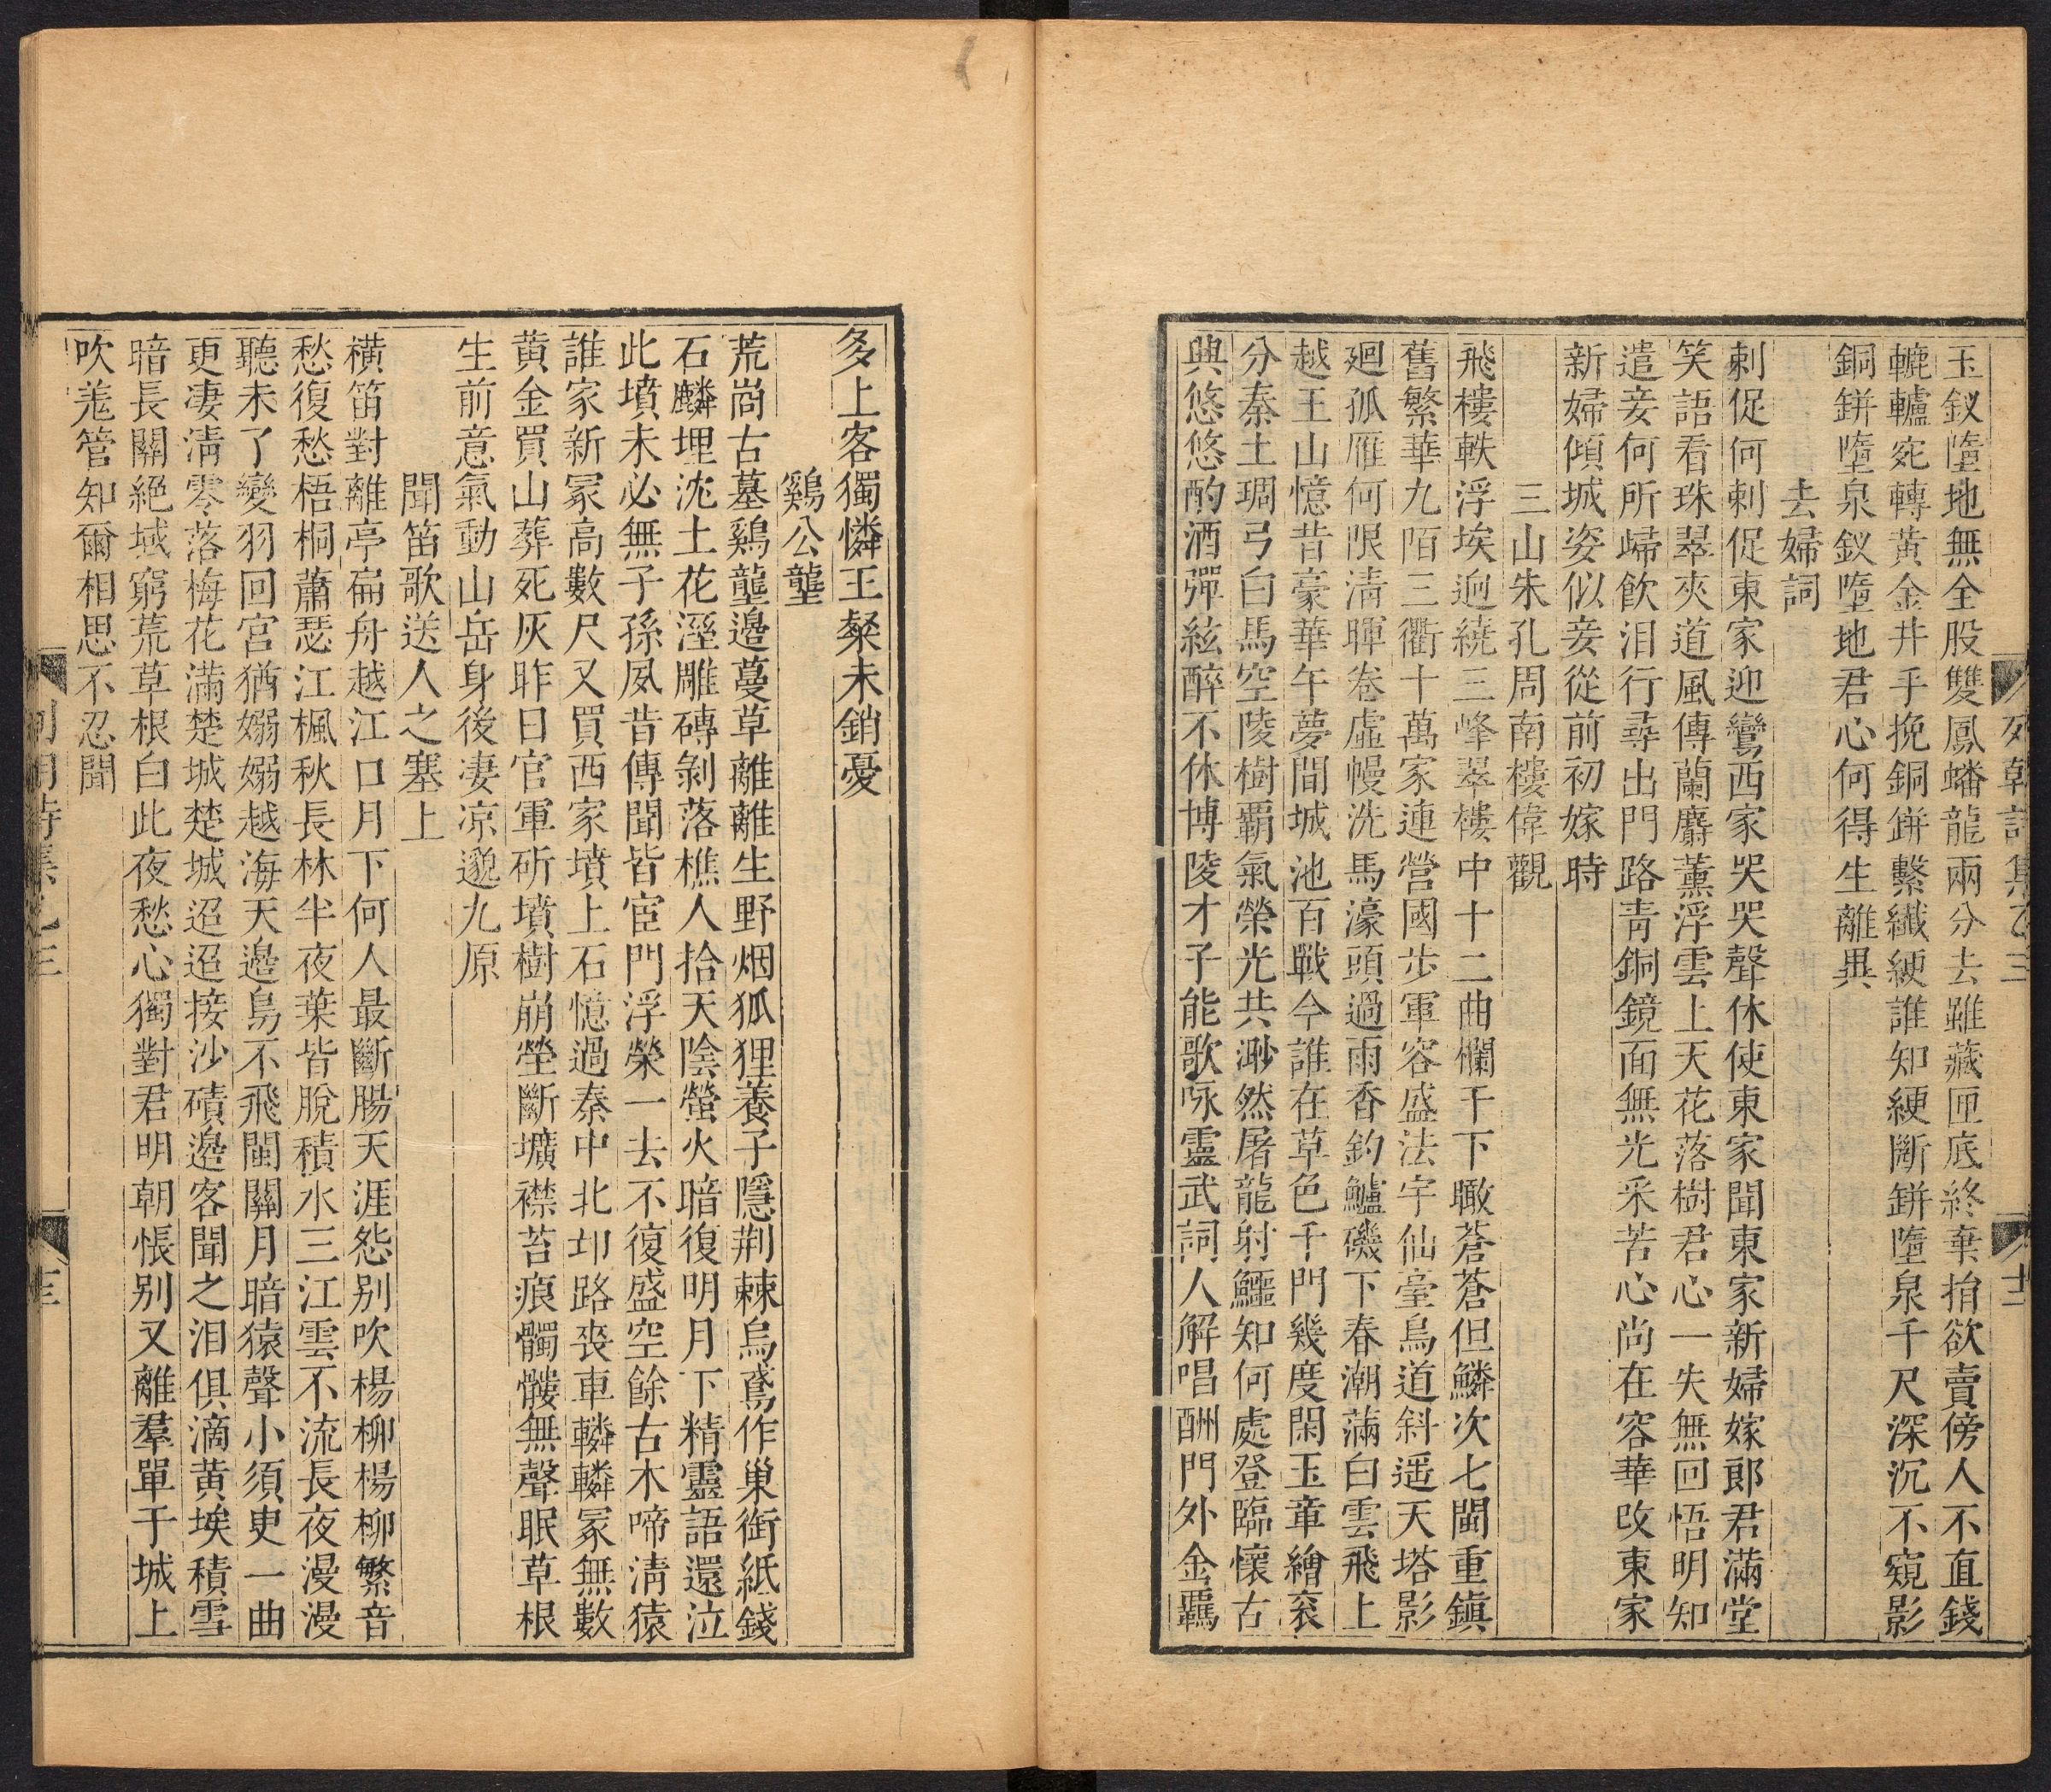 列朝詩集乙三 十二
玉釵墮地無全股雙鳳蟠龍兩分去雖藏匣底終棄捐欲賣傍人不直錢
轆轤宛轉黃金井手挽銅缾繫纖綆誰知綆斷缾墮泉千尺深沉不窺影
銅缾墮泉釵墮地君心何得生離異
去婦詞
刺促何刺促東家迎鸞西家哭哭聲休使東家聞東家新婦嫁郎君滿堂
笑語看珠翠夾道風傳蘭麝薰浮雲上天花落樹君心一失無回悟明知
遣妾何所歸飲泪行尋出門路青銅鏡面無光采苦心尚在容華改東家
新婦傾城姿似妾從前初嫁時
三山朱孔周南樓偉觀
飛樓軼浮埃逈繞三峰翠樓中十二曲欄干下瞰蒼蒼但鱗次七閩重鎭
舊繁華九陌三衢十萬家連營國步軍容盛法宇仙臺鳥道斜遥天塔影
廻孤雁何限清暉卷虛幔洗馬濠頭過雨香釣鱸磯下春潮滿白雲飛上
越王山憶昔豪華午夢間城池百戰今誰在草色千門幾度閑玉章繪衮
分秦土琱弓白馬空陵樹覇氣榮光共渺然屠龍射鱷知何處登臨懷古
興悠悠酌酒彈絃醉不休博陵才子能歌咏靈武詞人解唱酬門外金羈
多上客獨憐王粲未銷憂
鷄公壟
荒崗古墓鷄壟邊蔓草離離生野烟狐狸養子隱荆棘烏鳶作巢銜紙錢
石麟埋沈土花溼雕磚剝落樵人拾天陰螢火暗復明月下精靈語還泣
此墳未必無子孫夙昔傳聞皆宦門浮榮一去不復盛空餘古木啼淸猿
誰家新冢高數尺又買西家墳上石憶過秦中北邙路喪車轔轔冢無數
黄金買山葬死灰昨日官軍斫墳樹崩塋斷壙襟苔痕髑髏無聲眠草根
生前意氣動山岳身後凄凉邈九原
聞笛歌送人之塞上
橫笛對離亭扁舟越江口月下何人最斷腸天涯怨别吹楊柳楊柳繁音
愁復愁梧桐蕭瑟江楓秋長林半夜葉皆脫積水三江雲不流長夜漫漫
聽未了變羽回宮猶嫋嫋越海天邊鳥不飛閩關月暗猿聲小須臾一曲
更凄淸零落梅花滿楚城楚城迢迢接沙磧邊客聞之泪俱滴黄埃積雪
暗長關絕域窮荒草根白此夜愁心獨對君明朝悵别又離羣單于城上
吹羗管知爾相思不忍聞
列朝詩集乙三